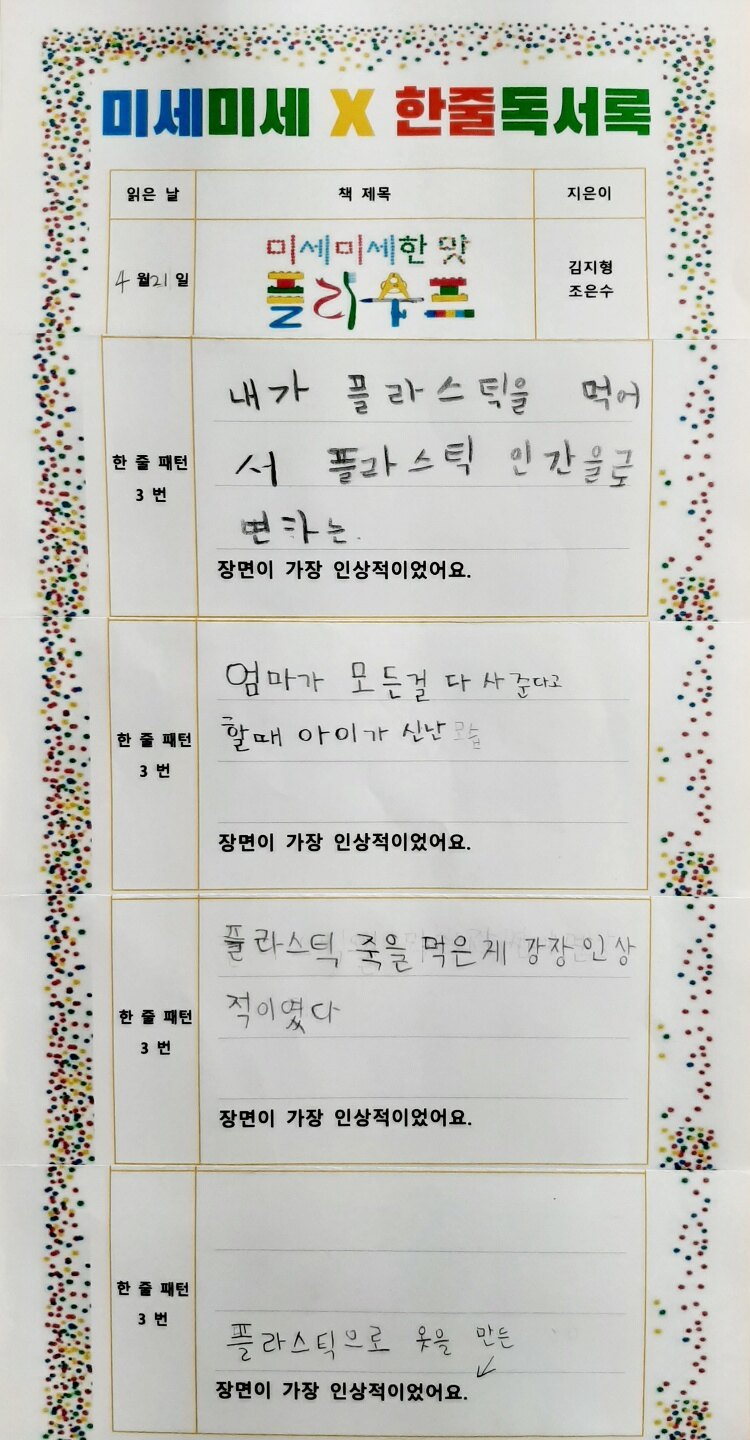 미세미세 X 한줄독서록
읽은 날 책 제목 지은이
미세미세한 맛
플라수프
4월21일
김지형
조은수
내가 플라스틱을 먹어
서 플라스틱 인간을로
변하는.
한 줄 패턴
3 번
장면이 가장 인상적이었어요.
엄마가 모든걸 다 사 준다고
할때 아이가 신난 모습
한 줄 패턴
3 번
장면이 가장 인상적이었어요.
플라스틱 죽을 먹은게 강장인상
적이였다
한 줄 패턴
3 번
장면이 가장 인상적이었어요.
한 줄 패턴
3 번
플라스틱으로 옷을 만든
장면이 가장 인상적이었어요.